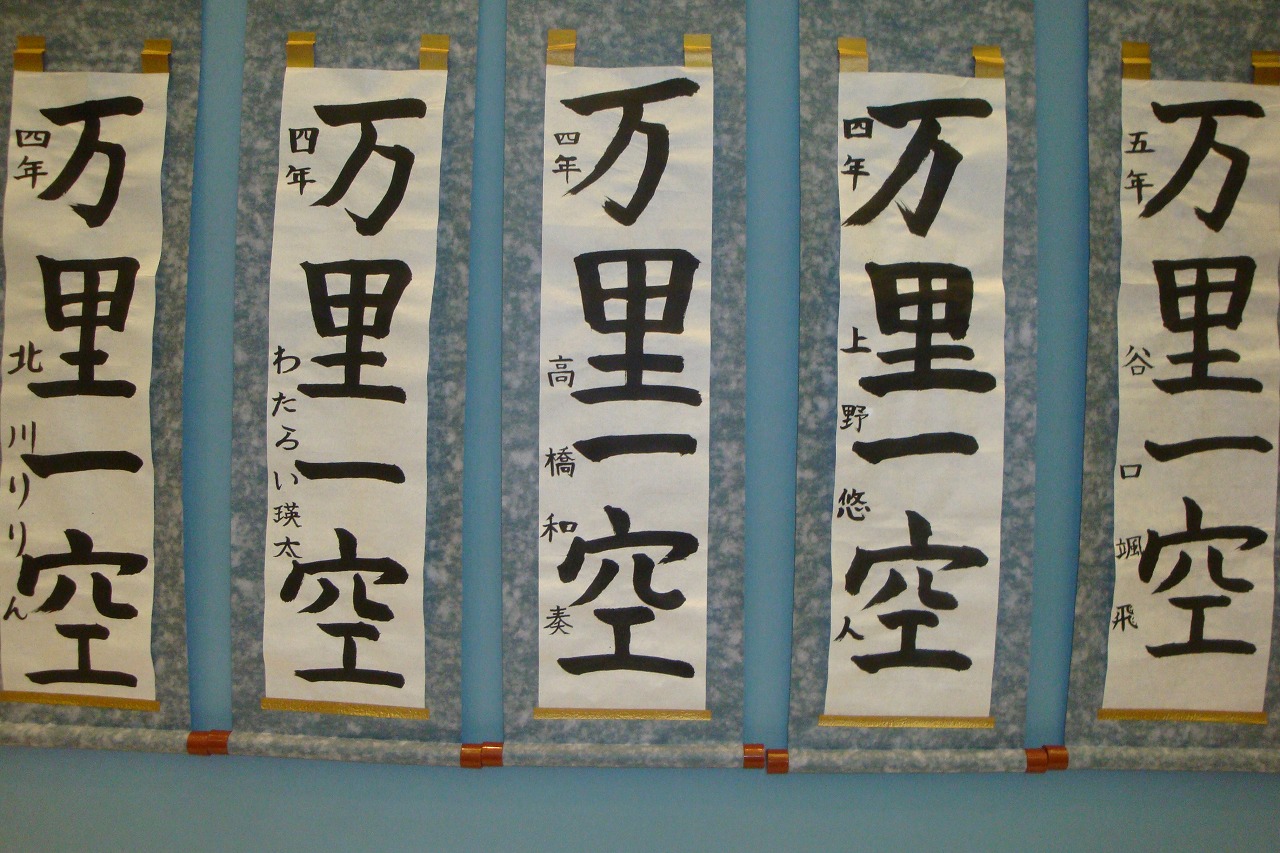 万里一空
四年 北川りりん
万里一空
四年 わたろい瑛太
万里一空
四年 高橋和奏
万里一空
四年 上野悠人
万里一空
五年 谷口颯飛